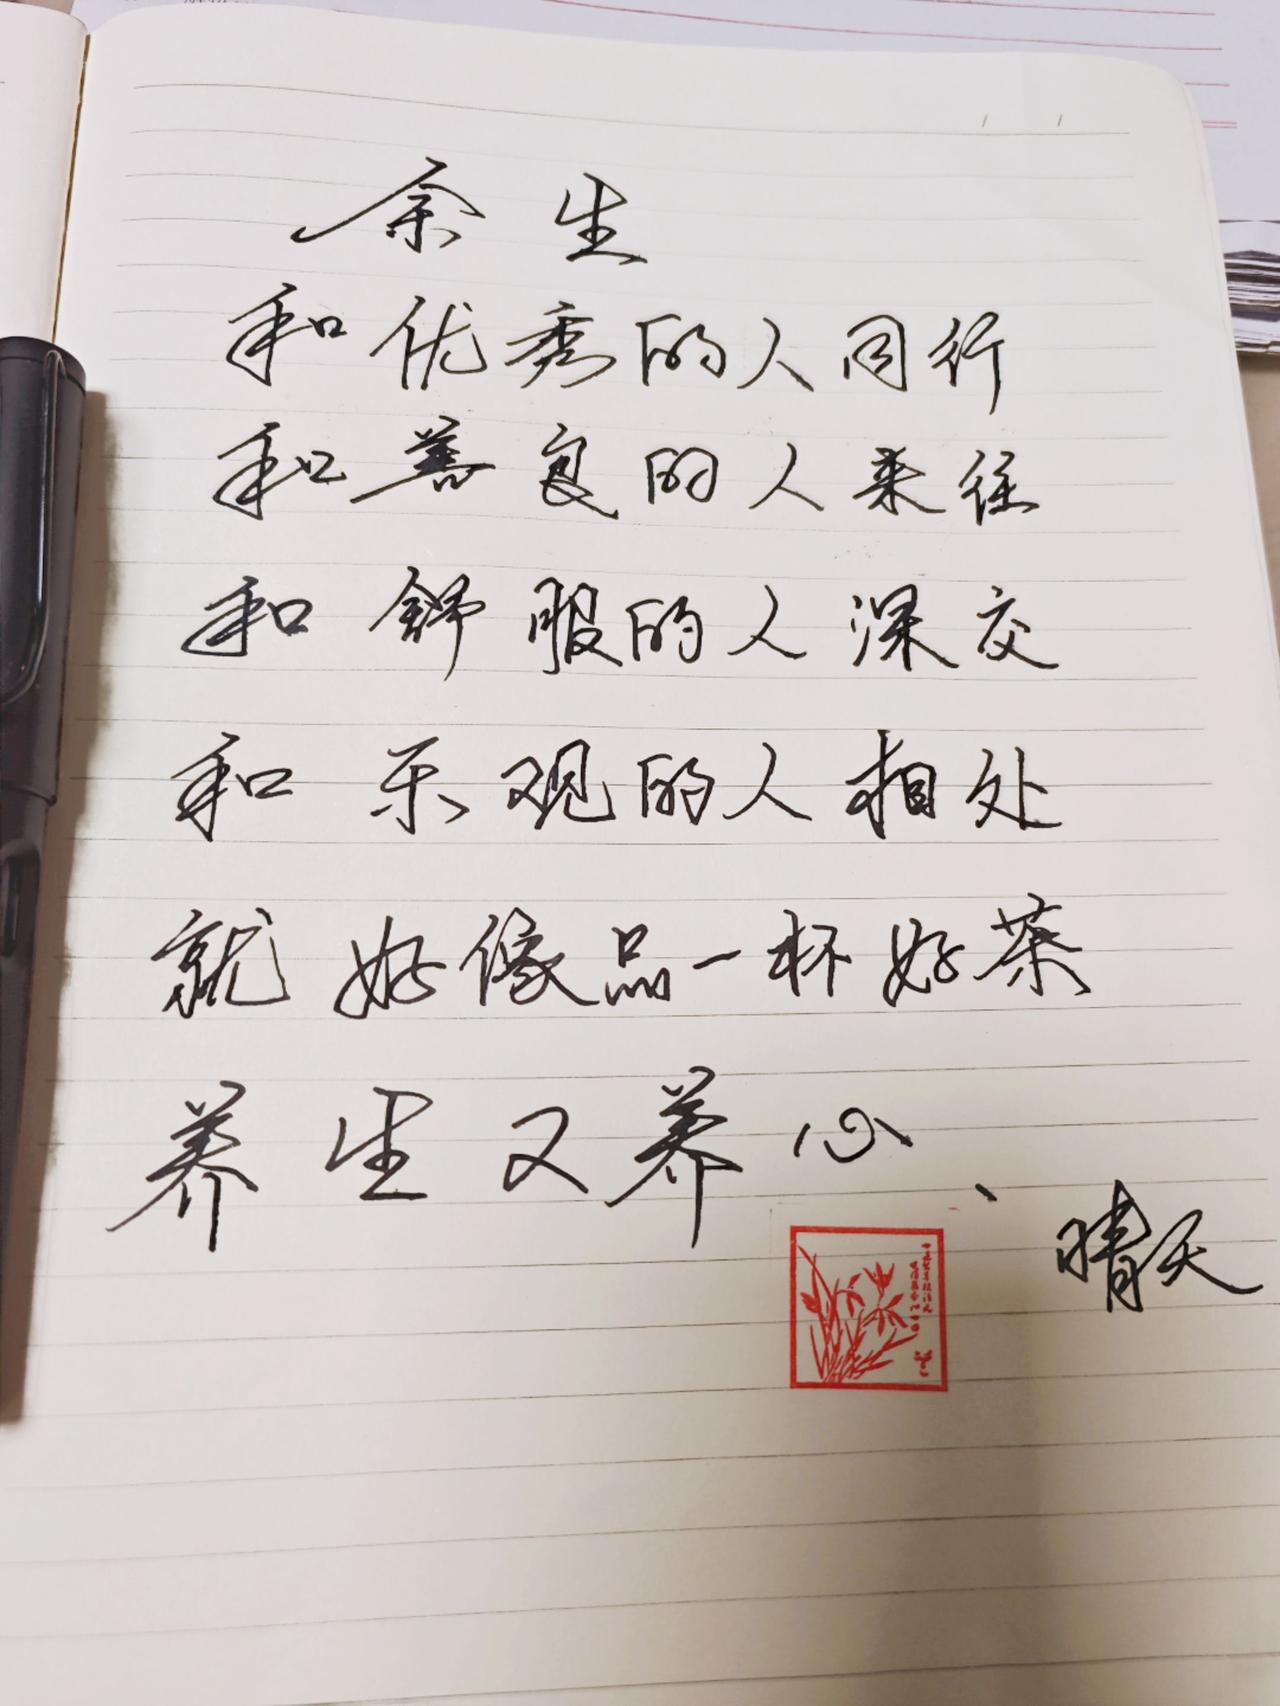 余生
和优秀的人同行
和善良的人来往
和舒服的人深交
和乐观的人相处
就好像品一杯好茶
养生又养心、
晴天